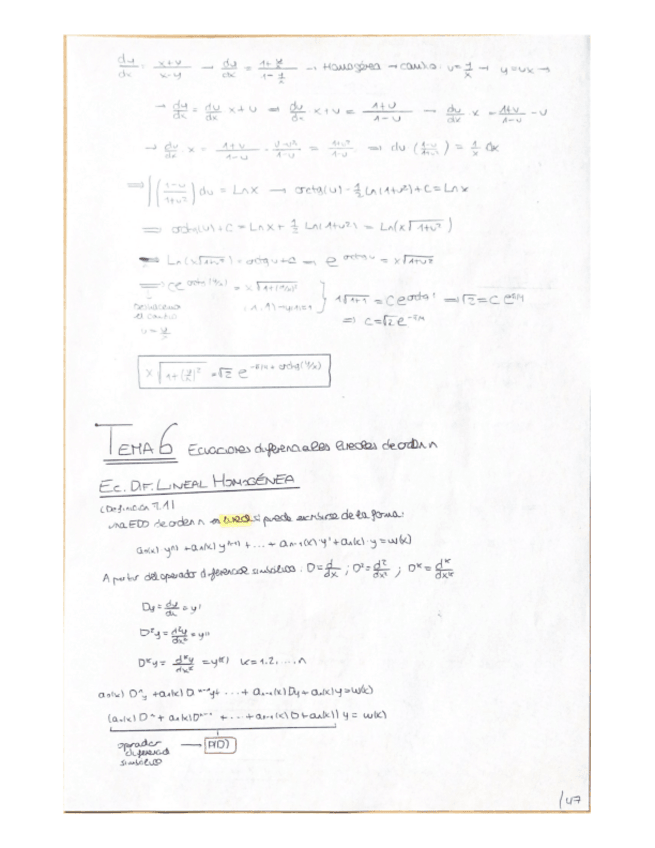 dy/dx = x+y/x-y → dy/dx = 1+y/x / 1-y/x → Homogénea → cambio: u=y/x → y=ux →
→ dy/dx = du/dx x+u ⇒ du/dx x+u = 1+u/1-u → du/dx x = 1+u/1-u - u
→ du/dx x = 1+u/1-u - u-u²/1-u = 1+u²/1-u ⇒ du (1-u/1+u²) = 1/x dx
⇒ ∫(1-u/1+u²) du = Ln x → arctg(u) - 1/2 Ln(1+u²) + C = Ln x
⇒ arctg(u)+C = Ln x + 1/2 Ln(1+u²) = Ln(x√1+u²)
Ln(x√1+u²) = arctg u + C ⇒ e^arctg u = x√1+u²
⇒ Ce^arctg(y/x) = x√1+(y/x)²
1√1+1 = C e^arctg 1 ⇒ √2 = C e^π/4
Deshacemos el cambio u = y/x
⇒ C = √2 e^-π/4
x√1+(y/x)² = √2 e^-π/4 + arctg(y/x)
TEMA 6 Ecuaciones diferenciales lineales de orden n
Ec. DIF. LINEAL HOMOGÉNEA
(Definición 7.1)
una EDO de orden n es lineal si puede escribirse de la forma:
a₀(x) y⁽ⁿ⁾ + a₁(x) y⁽ⁿ⁻¹⁾ + ... + aₙ₋₁(x) y' + aₙ(x) y = w(x)
A partir del operador diferencial simbólico: D = d/dx ; D² = d²/dx² ; Dᵏ = dᵏ/dxᵏ
Dy = dy/dx = y'
D²y = d²y/dx² = y''
Dᵏy = dᵏy/dxᵏ = y⁽ᵏ⁾ k=1,2,...,n
a₀(x) Dⁿy + a₁(x) Dⁿ⁻¹y + ... + aₙ₋₁(x) Dy + aₙ(x) y = w(x)
(a₀(x) Dⁿ + a₁(x) Dⁿ⁻¹ + ... + aₙ₋₁(x) D + aₙ(x)) y = w(x)
operador diferencial simbólico → P(D)
/47